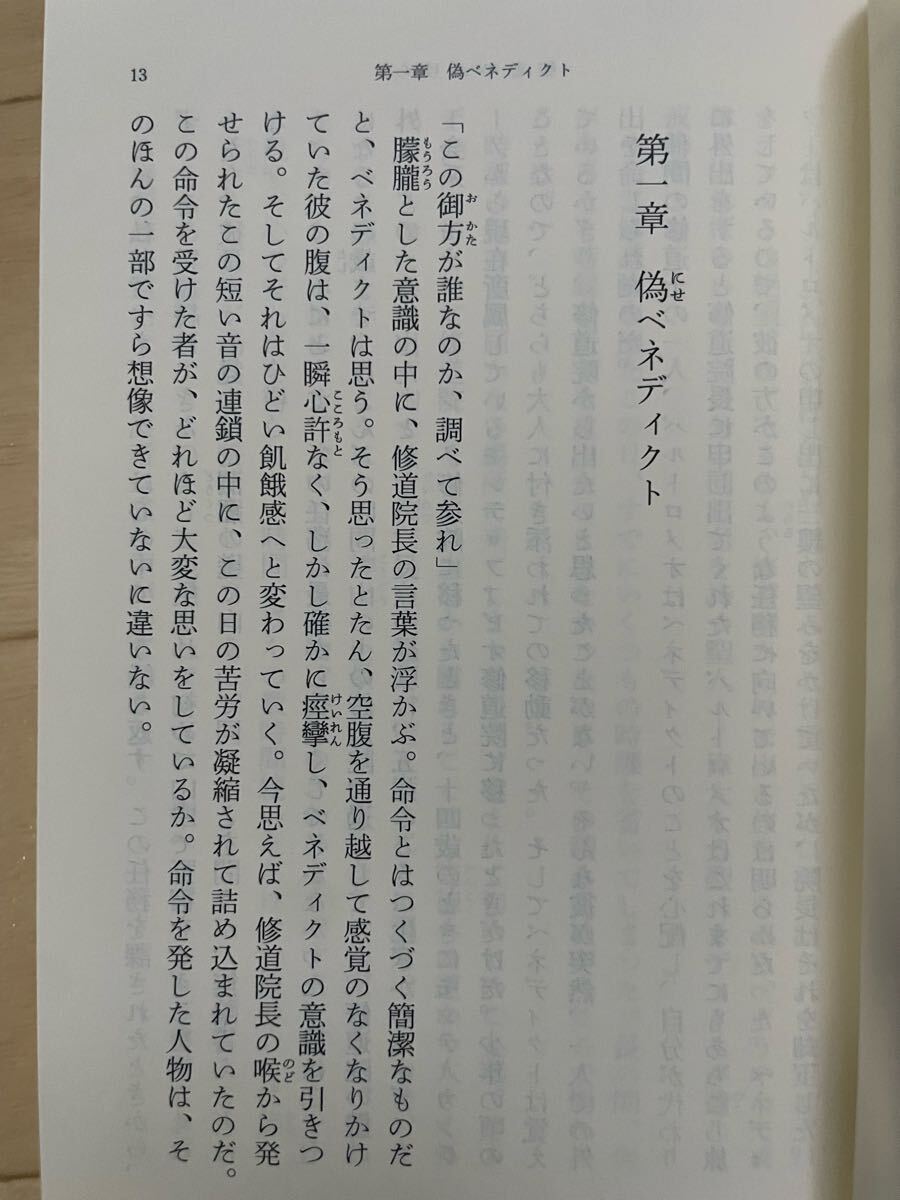 13
第一章 偽ベネディクト
第一章 偽ベネディクト
にせ
「この御方が誰なのか、調べて参れ」
お かた
朦朧とした意識の中に、修道院長の言葉が浮かぶ。命令とはつくづく簡潔なものだ
もうろう
と、ベネディクトは思う。そう思ったとたん、空腹を通り越して感覚のなくなりかけ
ていた彼の腹は、一瞬心許なく、しかし確かに痙攣し、ベネディクトの意識を引きつ
こころもと
けいれん
ける。そしてそれはひどい飢餓感へと変わっていく。今思えば、修道院長の喉から発
のど
せられたこの短い音の連鎖の中に、この日の苦労が凝縮されて詰め込まれていたのだ。
この命令を受けた者が、どれほど大変な思いをしているか。命令を発した人物は、そ
のほんの一部ですら想像できていないに違いない。